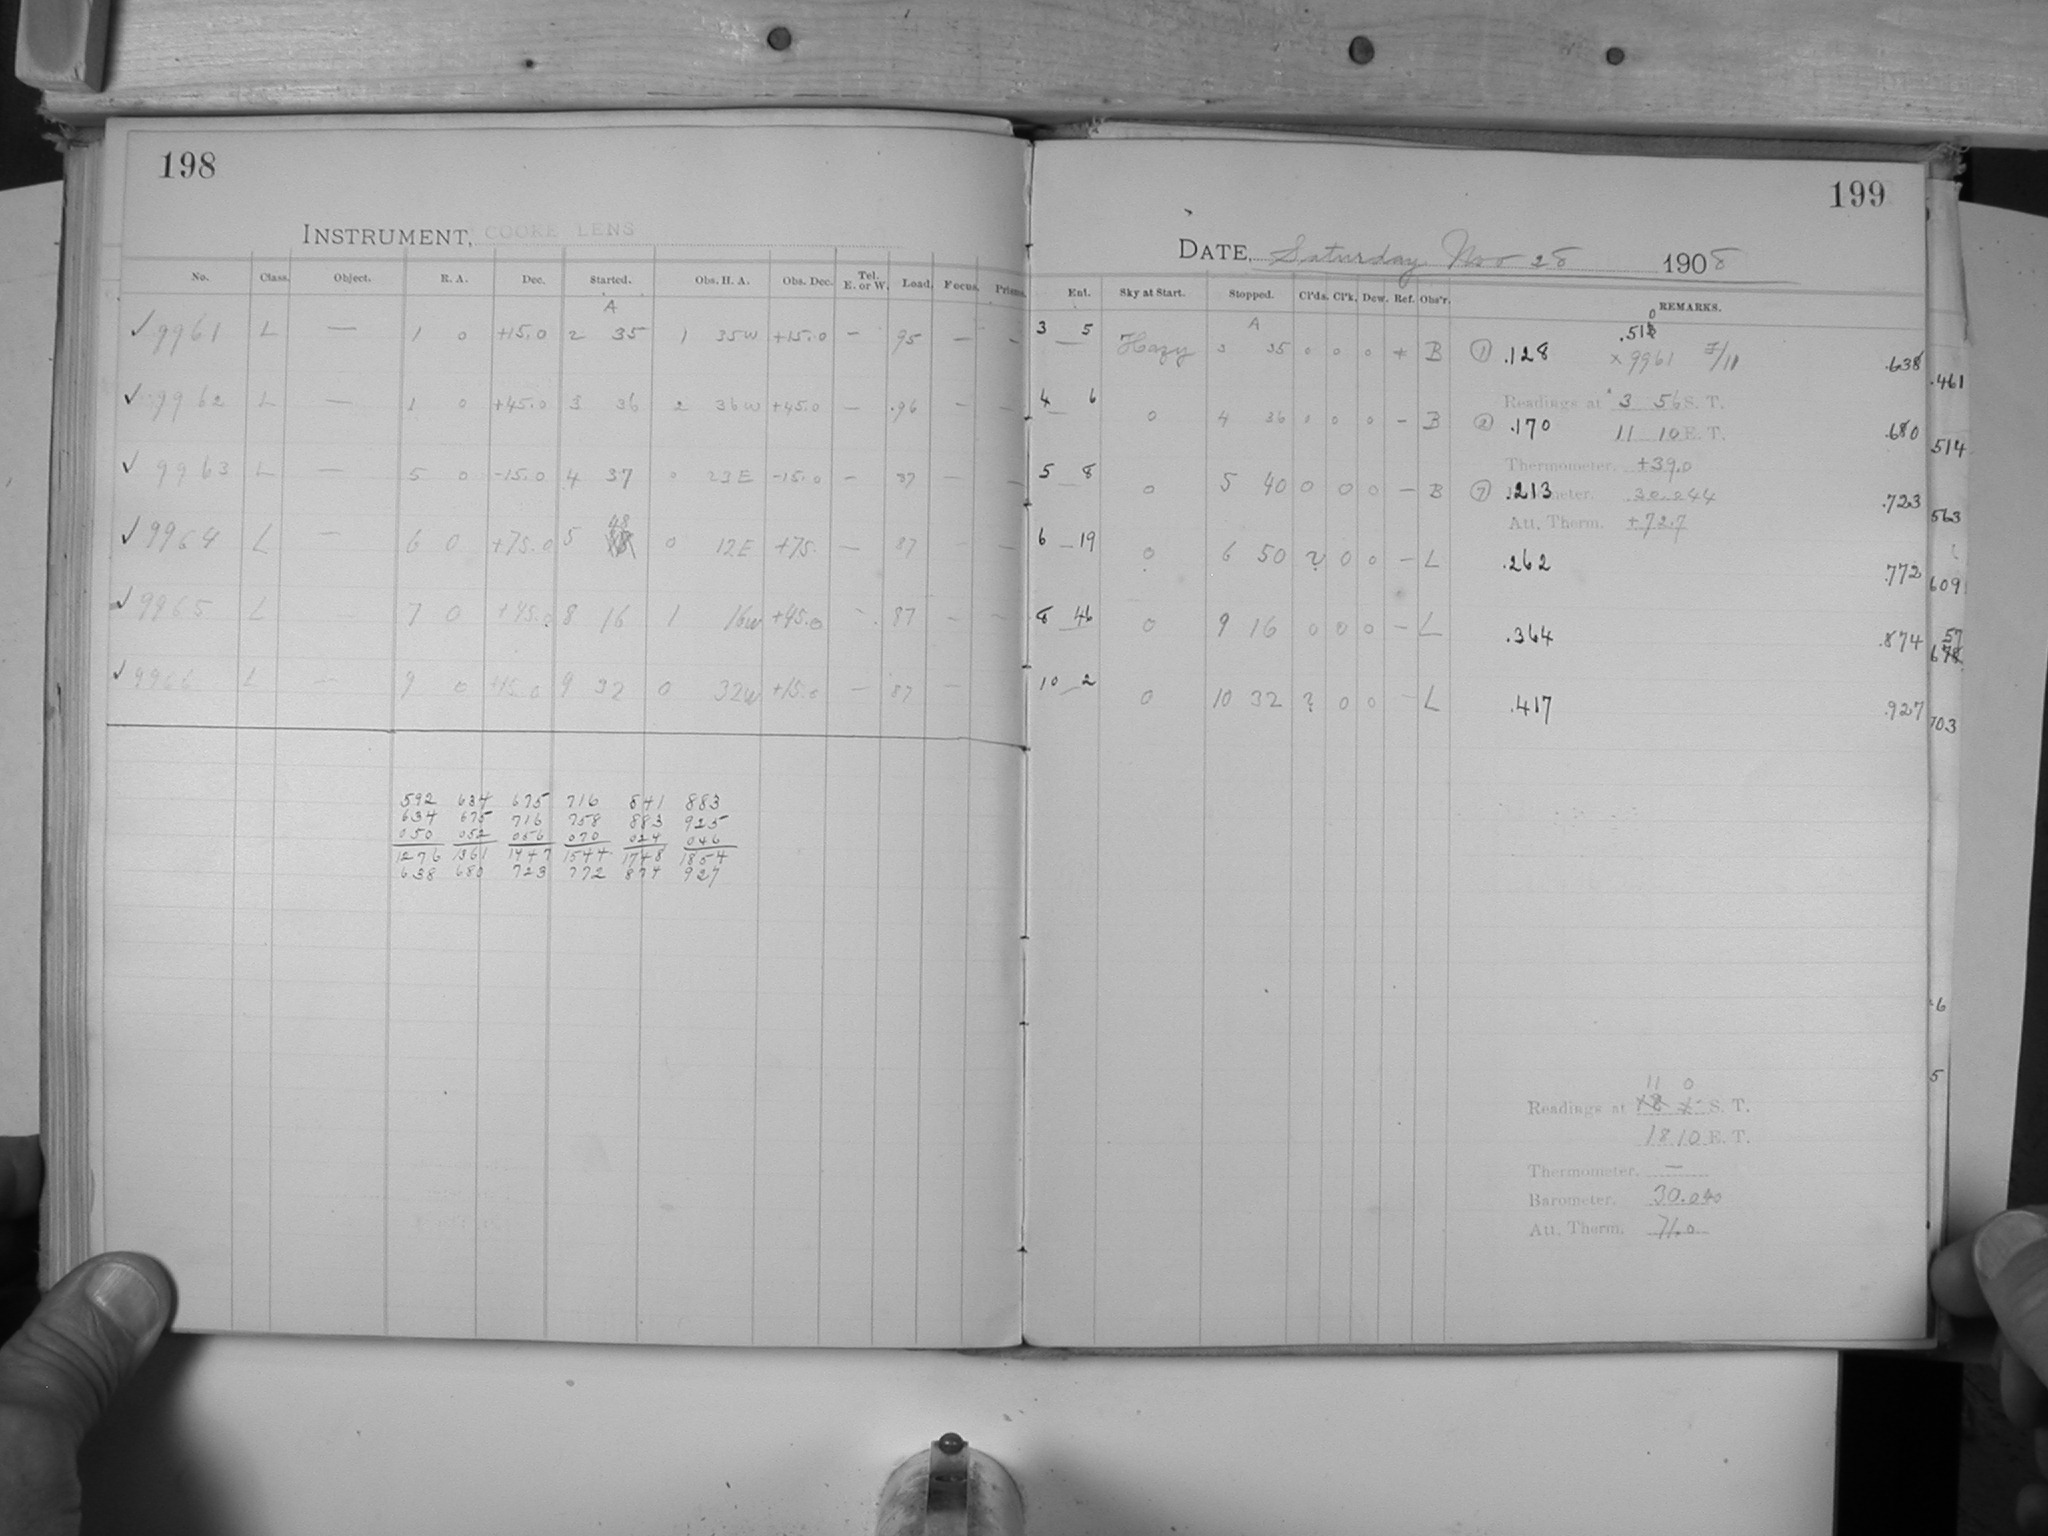 198
INSTRUMENT, COOKE LENS
No. Class. Object. R. A. Dec. Started. Obs. H. A. Obs. Dec. Tel. E. or W. Load. Focus. Prisms.
A
✓ 9961 L — 1 0 +15.0 2 35 1 35W +15.0 — 95 — —
✓ 9962 L — 1 0 +45.0 3 36 2 36W +45.0 — .96 — —
✓ 9963 L — 5 0 -15.0 4 37 0 23E -15.0 — 87 — —
48
✓ 9964 L — 6 0 +75.0 5 0 12E +75. — 87 —
✓ 9965 L — 7 0 +45.0 8 16 1 16W +45.0 - 87 — —
✓ 9966 L — 9 0 +15.0 9 32 0 32W +15.0 — 87 —
592 634 675 716 841 883
634 675 716 758 883 925
050 052 056 070 024 046
1276 1361 1447 1544 1748 1854
638 680 723 772 874 927
199
DATE, Saturday Nov 28 1908
Ent. Sky at Start. Stopped. Cl'ds. Cl'k. Dew. Ref. Obs'r. REMARKS.
A
3 5 Hazy 3 35 0 0 0 + B ① .128 × 9961 .638 .461
Readings at 3 56 S. T.
4 6 0 4 36 0 0 0 – B ② .170 11 10 E. T. .680 514
Thermometer. +39.0
5 8 0 5 40 0 0 0 – B ⑦ .213 30.244 .723 563
Att. Therm. +72.7
6 19 0 6 50 ? 0 0 – L .262 .772 609
8 46 0 9 16 0 0 0 – L .364 .874 57
10 2 0 10 32 ? 0 0 – L .417 .927 703
6
5
11 0
Readings at S. T.
18 10 E. T.
Thermometer. —
Barometer. 30.040
Att. Therm. 71.0